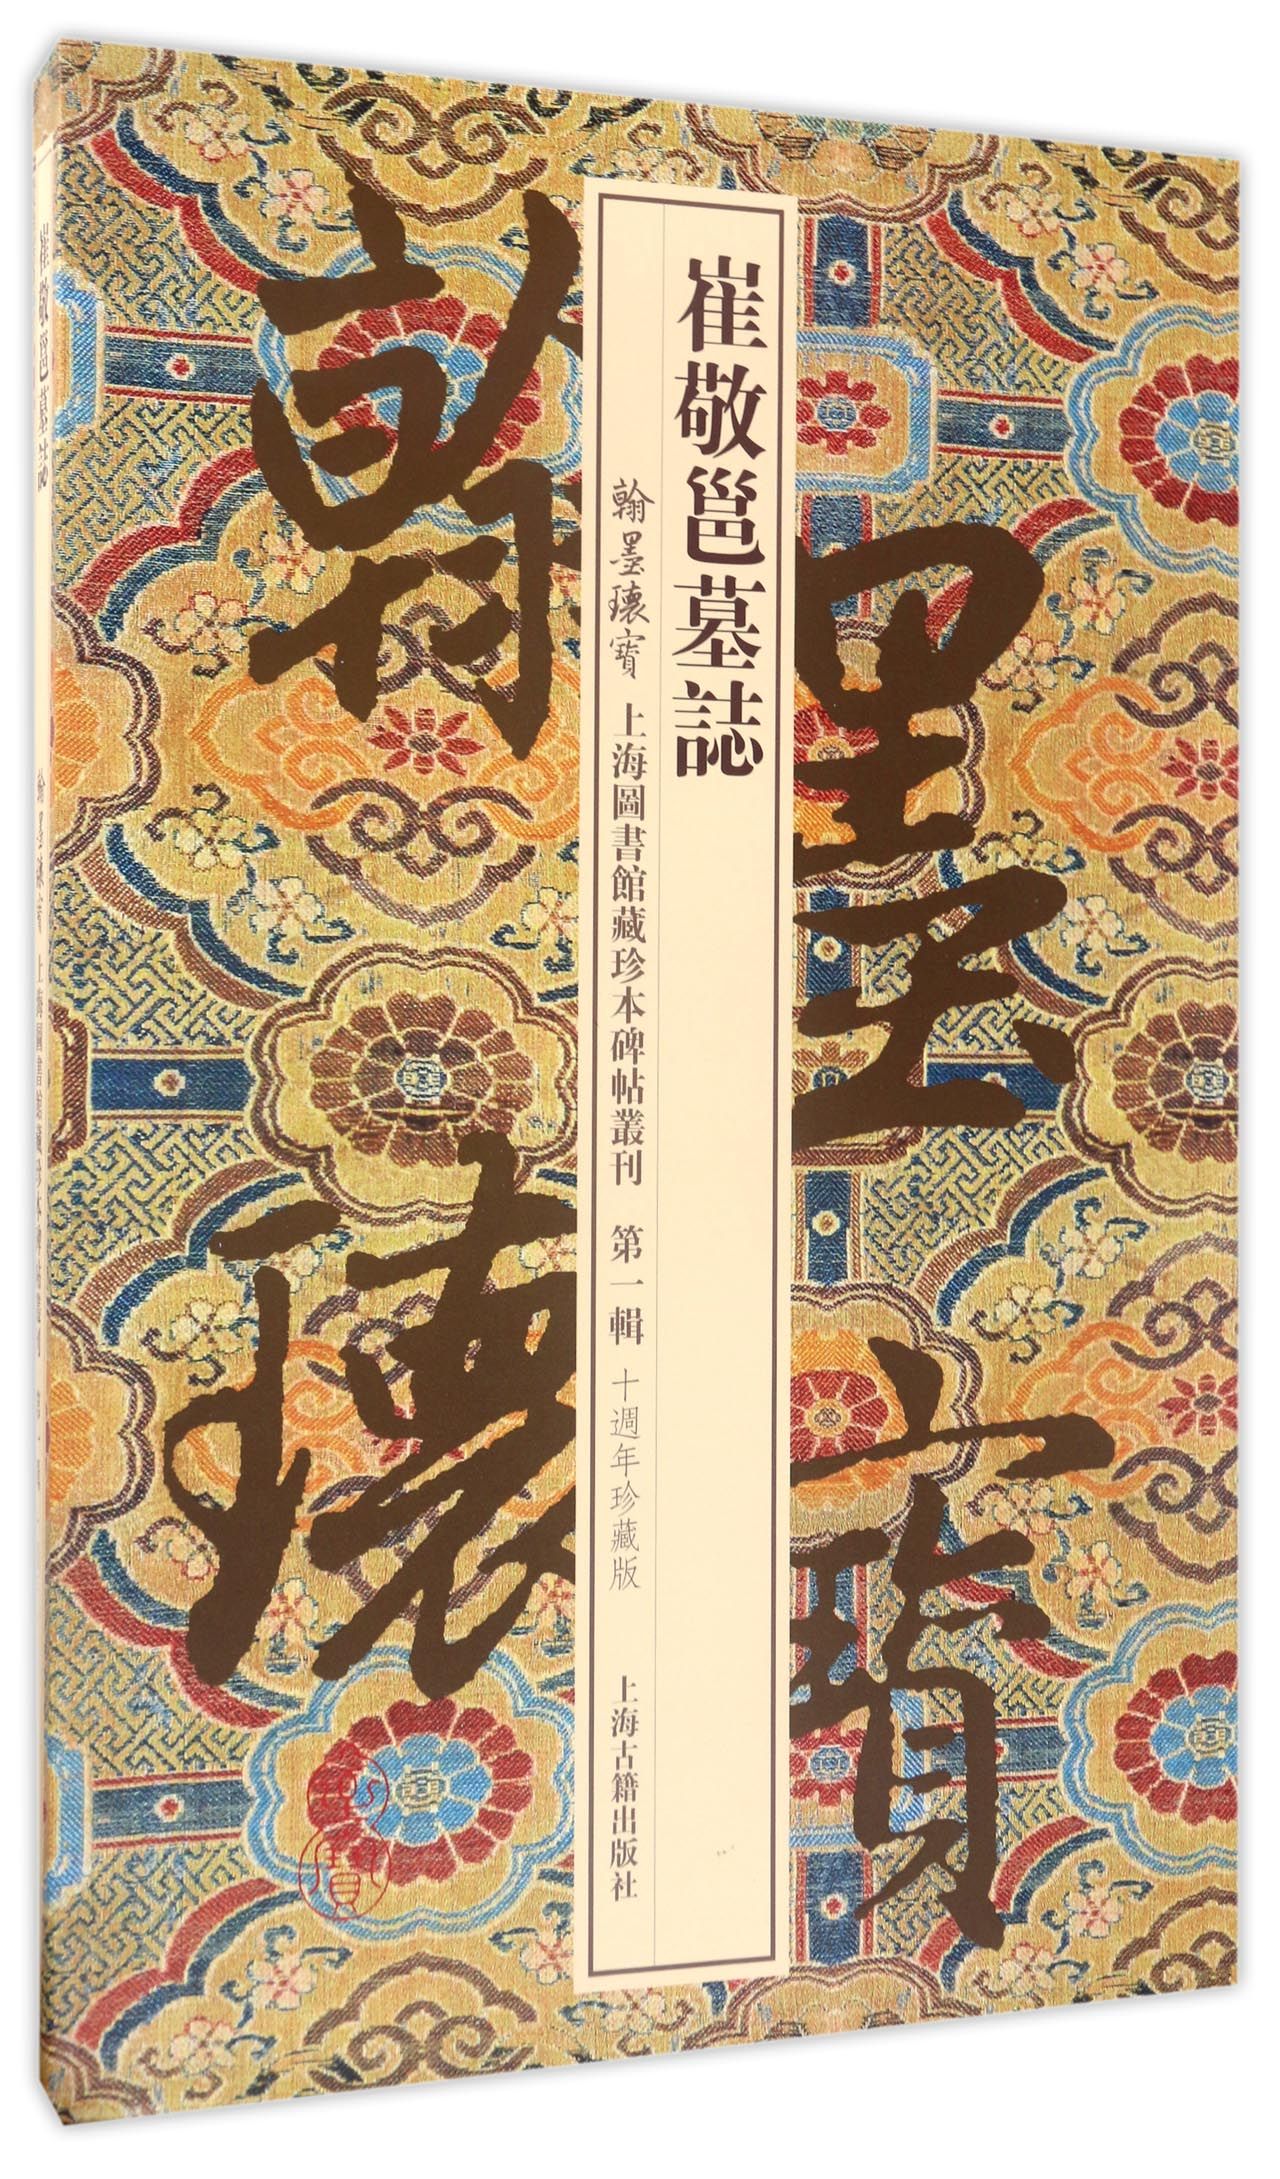 崔敬邕墓誌
翰墨瓌寶 上海圖書館藏珍本碑帖叢刊 第一輯 十週年珍藏版 上海古籍出版社
翰墨
瓌寶
崔敬邕墓誌
翰墨瓌寶 上海圖書館藏珍本碑帖叢刊